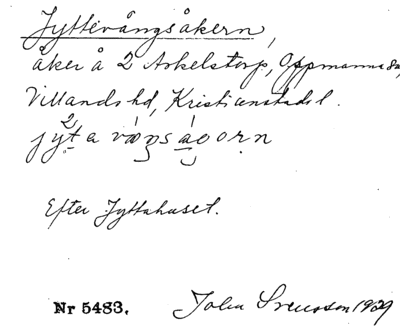 Jyttevångsåkern,
åker å 2 Arkelstorp, Oppmanna sn,
Villands hd, Kristianstads l.
Efter Jyttahuset.
Nr 5483. John Svensson 1929